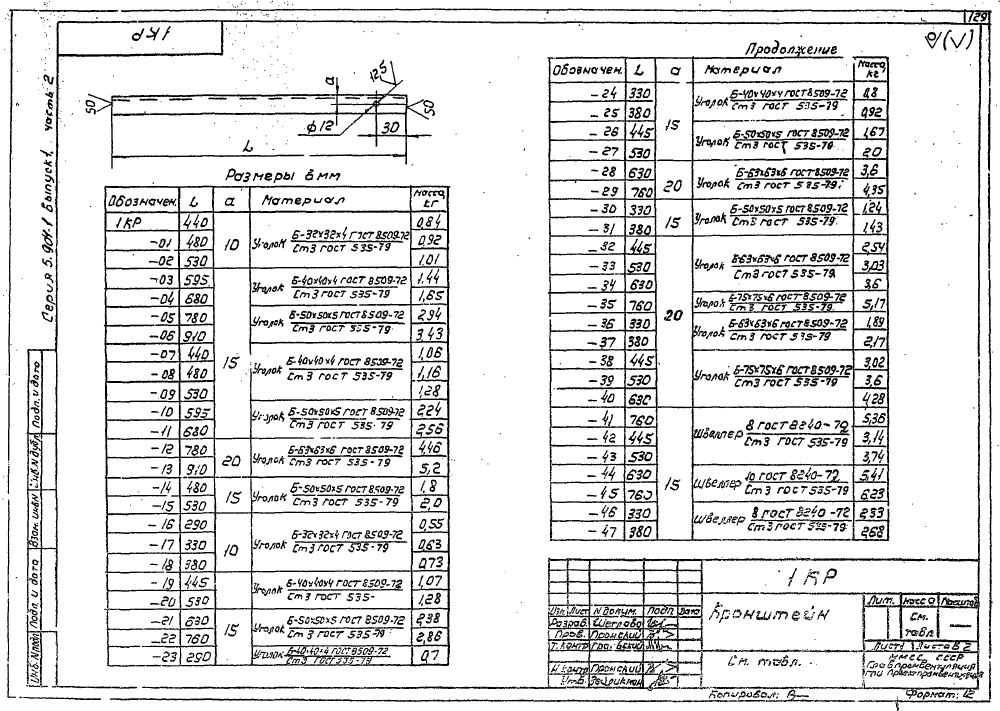 129
1КР
√(√)
Серия 5.904-1 Выпуск 1, часть 2
50
a
125
50
ϕ12
30
L
Размеры в мм
Обозначен. L a Материал Масса, кг
1КР 440 10 Уголок Б-32х32х4 ГОСТ 8509-72 / Ст3 ГОСТ 535-79 0,84
-01 480 0,92
-02 530 1,01
-03 595 15 Уголок Б-40х40х4 ГОСТ 8509-72 / Ст3 ГОСТ 535-79 1,44
-04 680 1,65
-05 780 Уголок Б-50х50х5 ГОСТ 8509-72 / Ст3 ГОСТ 535-79 2,94
-06 910 3,43
-07 440 Уголок Б-40х40х4 ГОСТ 8509-72 / Ст3 ГОСТ 535-79 1,06
-08 480 1,16
-09 530 1,28
-10 595 Уголок Б-50х50х5 ГОСТ 8509-72 / Ст3 ГОСТ 535-79 2,24
-11 680 2,56
-12 780 20 Уголок Б-63х63х6 ГОСТ 8509-72 / Ст3 ГОСТ 535-79 4,46
-13 910 5,2
-14 480 15 Уголок Б-50х50х5 ГОСТ 8509-72 / Ст3 ГОСТ 535-79 1,8
-15 530 2,0
-16 290 10 Уголок Б-32х32х4 ГОСТ 8509-72 / Ст3 ГОСТ 535-79 0,55
-17 330 0,63
-18 380 0,73
-19 445 15 Уголок Б-40х40х4 ГОСТ 8509-72 / Ст3 ГОСТ 535- 1,07
-20 530 1,28
-21 630 Уголок Б-50х50х5 ГОСТ 8509-72 / Ст3 ГОСТ 535-79 2,38
-22 760 2,86
-23 290 Уголок Б-40х40х4 ГОСТ 8509-72 / Ст3 ГОСТ 535-79 0,7
Продолжение
Обозначен. L a Материал Масса, кг
-24 330 15 Уголок Б-40х40х4 ГОСТ 8509-72 / Ст3 ГОСТ 535-79 0,8
-25 380 0,92
-26 445 Уголок Б-50х50х5 ГОСТ 8509-72 / Ст3 ГОСТ 535-79 1,67
-27 530 2,0
-28 630 20 Уголок Б-63х63х6 ГОСТ 8509-72 / Ст3 ГОСТ 535-79 3,6
-29 760 4,35
-30 330 15 Уголок Б-50х50х5 ГОСТ 8509-72 / Ст3 ГОСТ 535-79 1,24
-31 380 1,43
-32 445 20 Уголок Б-63х63х6 ГОСТ 8509-72 / Ст3 ГОСТ 535-79 2,54
-33 530 3,03
-34 630 3,6
-35 760 Уголок Б-75х75х6 ГОСТ 8509-72 / Ст3 ГОСТ 535-79 5,17
-36 330 Уголок Б-63х63х6 ГОСТ 8509-72 / Ст3 ГОСТ 535-79 1,89
-37 380 2,17
-38 445 Уголок Б-75х75х6 ГОСТ 8509-72 / Ст3 ГОСТ 535-79 3,02
-39 530 3,6
-40 630 4,28
-41 760 15 Швеллер 8 ГОСТ 8240-72 / Ст3 ГОСТ 535-79 5,36
-42 445 3,14
-43 530 3,74
-44 630 Швеллер 10 ГОСТ 8240-72 / Ст3 ГОСТ 535-79 5,41
-45 760 6,23
-46 330 Швеллер 8 ГОСТ 8240-72 / Ст3 ГОСТ 535-79 2,33
-47 380 2,68
1КР
Кронштейн
См. табл.
Лит. Масса Масштаб
См. табл. —
Лист 1 Листов 2
ММСС СССР
Главпромвентиляция
ГПИ Проектпромвентиляция
Изм. Лист N Докум. Подп. Дата
Разраб.
Пров. Пронский
Т.контр.
Н.контр. Пронский
Утв.
Инв.N подл. Подп. и дата Взам. инв.N Инв.N дубл. Подп. и дата
Копировал: Формат: 12